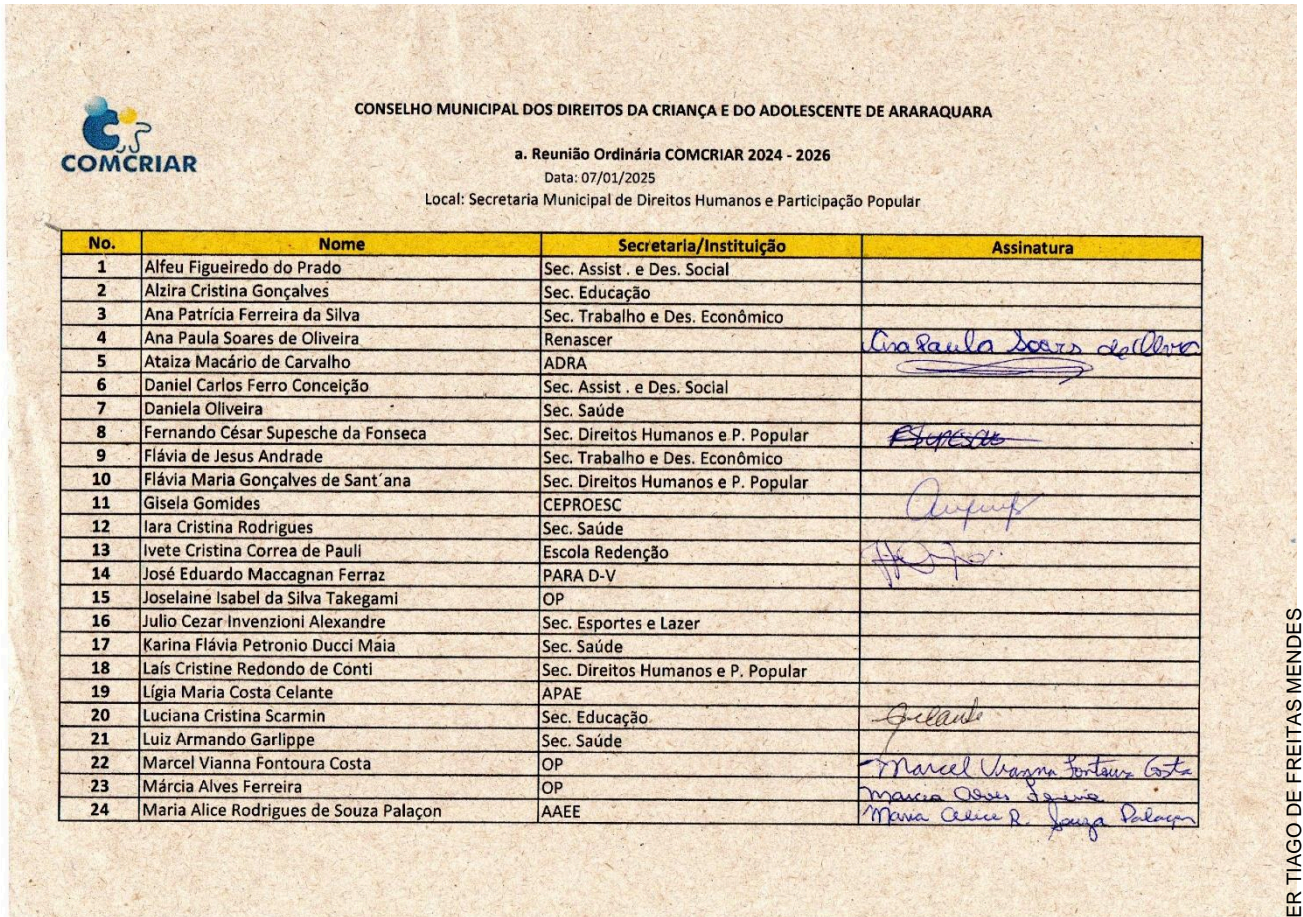 COMCRIAR
CONSELHO MUNICIPAL DOS DIREITOS DA CRIANÇA E DO ADOLESCENTE DE ARARAQUARA
a. Reunião Ordinária COMCRIAR 2024 - 2026
Data: 07/01/2025
Local: Secretaria Municipal de Direitos Humanos e Participação Popular
No. Nome Secretaria/Instituição Assinatura
1 Alfeu Figueiredo do Prado Sec. Assist . e Des. Social
2 Alzira Cristina Gonçalves Sec. Educação
3 Ana Patrícia Ferreira da Silva Sec. Trabalho e Des. Econômico
4 Ana Paula Soares de Oliveira Renascer Ana Paula Soares de
5 Ataiza Macário de Carvalho ADRA
6 Daniel Carlos Ferro Conceição Sec. Assist . e Des. Social
7 Daniela Oliveira Sec. Saúde
8 Fernando César Supesche da Fonseca Sec. Direitos Humanos e P. Popular
9 Flávia de Jesus Andrade Sec. Trabalho e Des. Econômico
10 Flávia Maria Gonçalves de Sant´ana Sec. Direitos Humanos e P. Popular
11 Gisela Gomides CEPROESC
12 Iara Cristina Rodrigues Sec. Saúde
13 Ivete Cristina Correa de Pauli Escola Redenção
14 José Eduardo Maccagnan Ferraz PARA D-V
15 Joselaine Isabel da Silva Takegami OP
16 Julio Cezar Invenzioni Alexandre Sec. Esportes e Lazer
17 Karina Flávia Petronio Ducci Maia Sec. Saúde
18 Laís Cristine Redondo de Conti Sec. Direitos Humanos e P. Popular
19 Lígia Maria Costa Celante APAE
20 Luciana Cristina Scarmin Sec. Educação
21 Luiz Armando Garlippe Sec. Saúde
22 Marcel Vianna Fontoura Costa OP Marcel Vianna Fontoura Costa
23 Márcia Alves Ferreira OP Marcia Alves Ferreira
24 Maria Alice Rodrigues de Souza Palaçon AAEE Maria Alice R. Souza Palaçon
ER TIAGO DE FREITAS MENDES